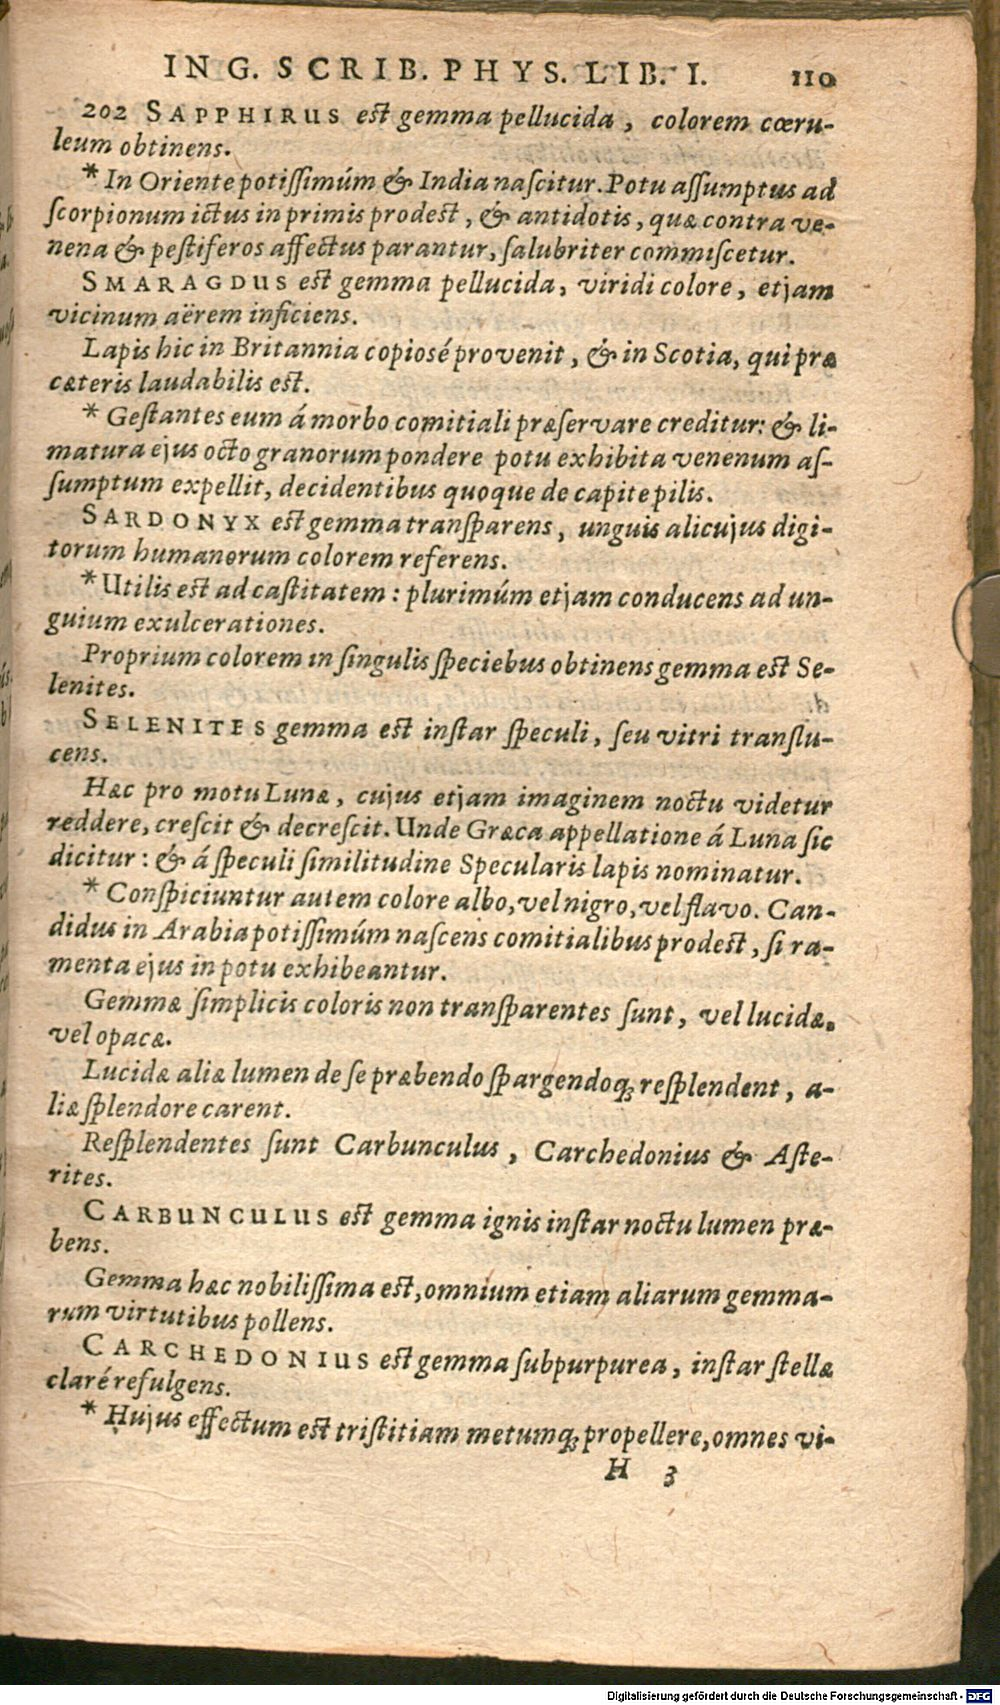 IN G. SCRIB. PHYS. LIB. I. 110
202 SAPPHIRUS est gemma pellucida, colorem cœru-
leum obtinens.
* In Oriente potissimúm & India nascitur. Potu assumptus ad
scorpionum ictus in primis prodest, & antidotis, quæ contra ve-
nena & pestiferos affectus parantur, salubriter commiscetur.
SMARAGDUS est gemma pellucida, viridi colore, etjam
vicinum aërem inficiens.
Lapis hic in Britannia copiosé provenit, & in Scotia, qui præ
cæteris laudabilis est.
* Gestantes eum á morbo comitiali præservare creditur: & li-
matura ejus octo granorum pondere potu exhibita venenum as-
sumptum expellit, decidentibus quoque de capite pilis.
SARDONYX est gemma transparens, unguis alicujus digi-
torum humanorum colorem referens.
* Utilis est ad castitatem: plurimúm etjam conducens ad un-
guium exulcerationes.
Proprium colorem in singulis speciebus obtinens gemma est Se-
lenites.
SELENITES gemma est instar speculi, seu vitri translu-
cens.
Hæc pro motu Lunæ, cujus etjam imaginem noctu videtur
reddere, crescit & decrescit. Unde Græca appellatione á Luna sic
dicitur: & á speculi similitudine Specularis lapis nominatur.
* Conspiciuntur autem colore albo, vel nigro, vel flavo. Can-
didus in Arabia potissimúm nascens comitialibus prodest, si ra-
menta ejus in potu exhibeantur.
Gemmæ simplicis coloris non transparentes sunt, vel lucidæ,
vel opacæ.
Lucidæ aliæ lumen de se præbendo spargendoq; resplendent, a-
liæ splendore carent.
Resplendentes sunt Carbunculus, Carchedonius & Aste-
rites.
CARBUNCULUS est gemma ignis instar noctu lumen præ-
bens.
Gemma hæc nobilissima est, omnium etiam aliarum gemma-
rum virtutibus pollens.
CARCHEDONIUS est gemma subpurpurea, instar stellæ
claré refulgens.
* Hujus effectum est tristitiam metumq; propellere, omnes vi-
H 3
Digitalisierung gefördert durch die Deutsche Forschungsgemeinschaft - DFG